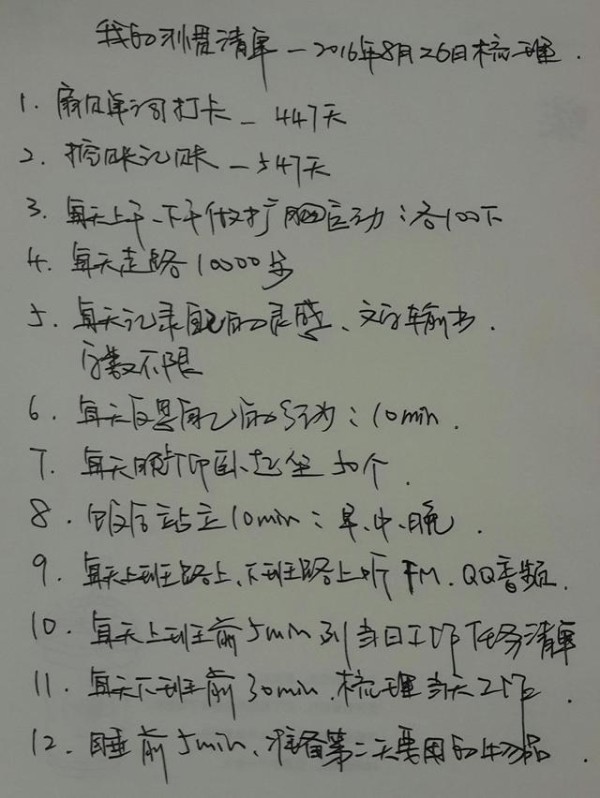 我的习惯清单—2016年8月26日梳理.
1. 扇贝单词打卡—447天
2. 挖财记账—547天
3. 每天上午、下午做扩胸运动:各100下
4. 每天走路10000步
5. 每天记录自己的灵感、文字输出.
字数不限
6. 每天反思自己的行动:10min.
7. 每天晚上仰卧起坐50个.
8. 饭后站立10min:早.中.晚.
9. 每天上班路上、下班路上听FM.QQ音频.
10. 每天上班前5min列当日工作任务清单
11. 每天下班前30min.梳理当天工作.
12. 睡前5min、准备第二天要用的物品